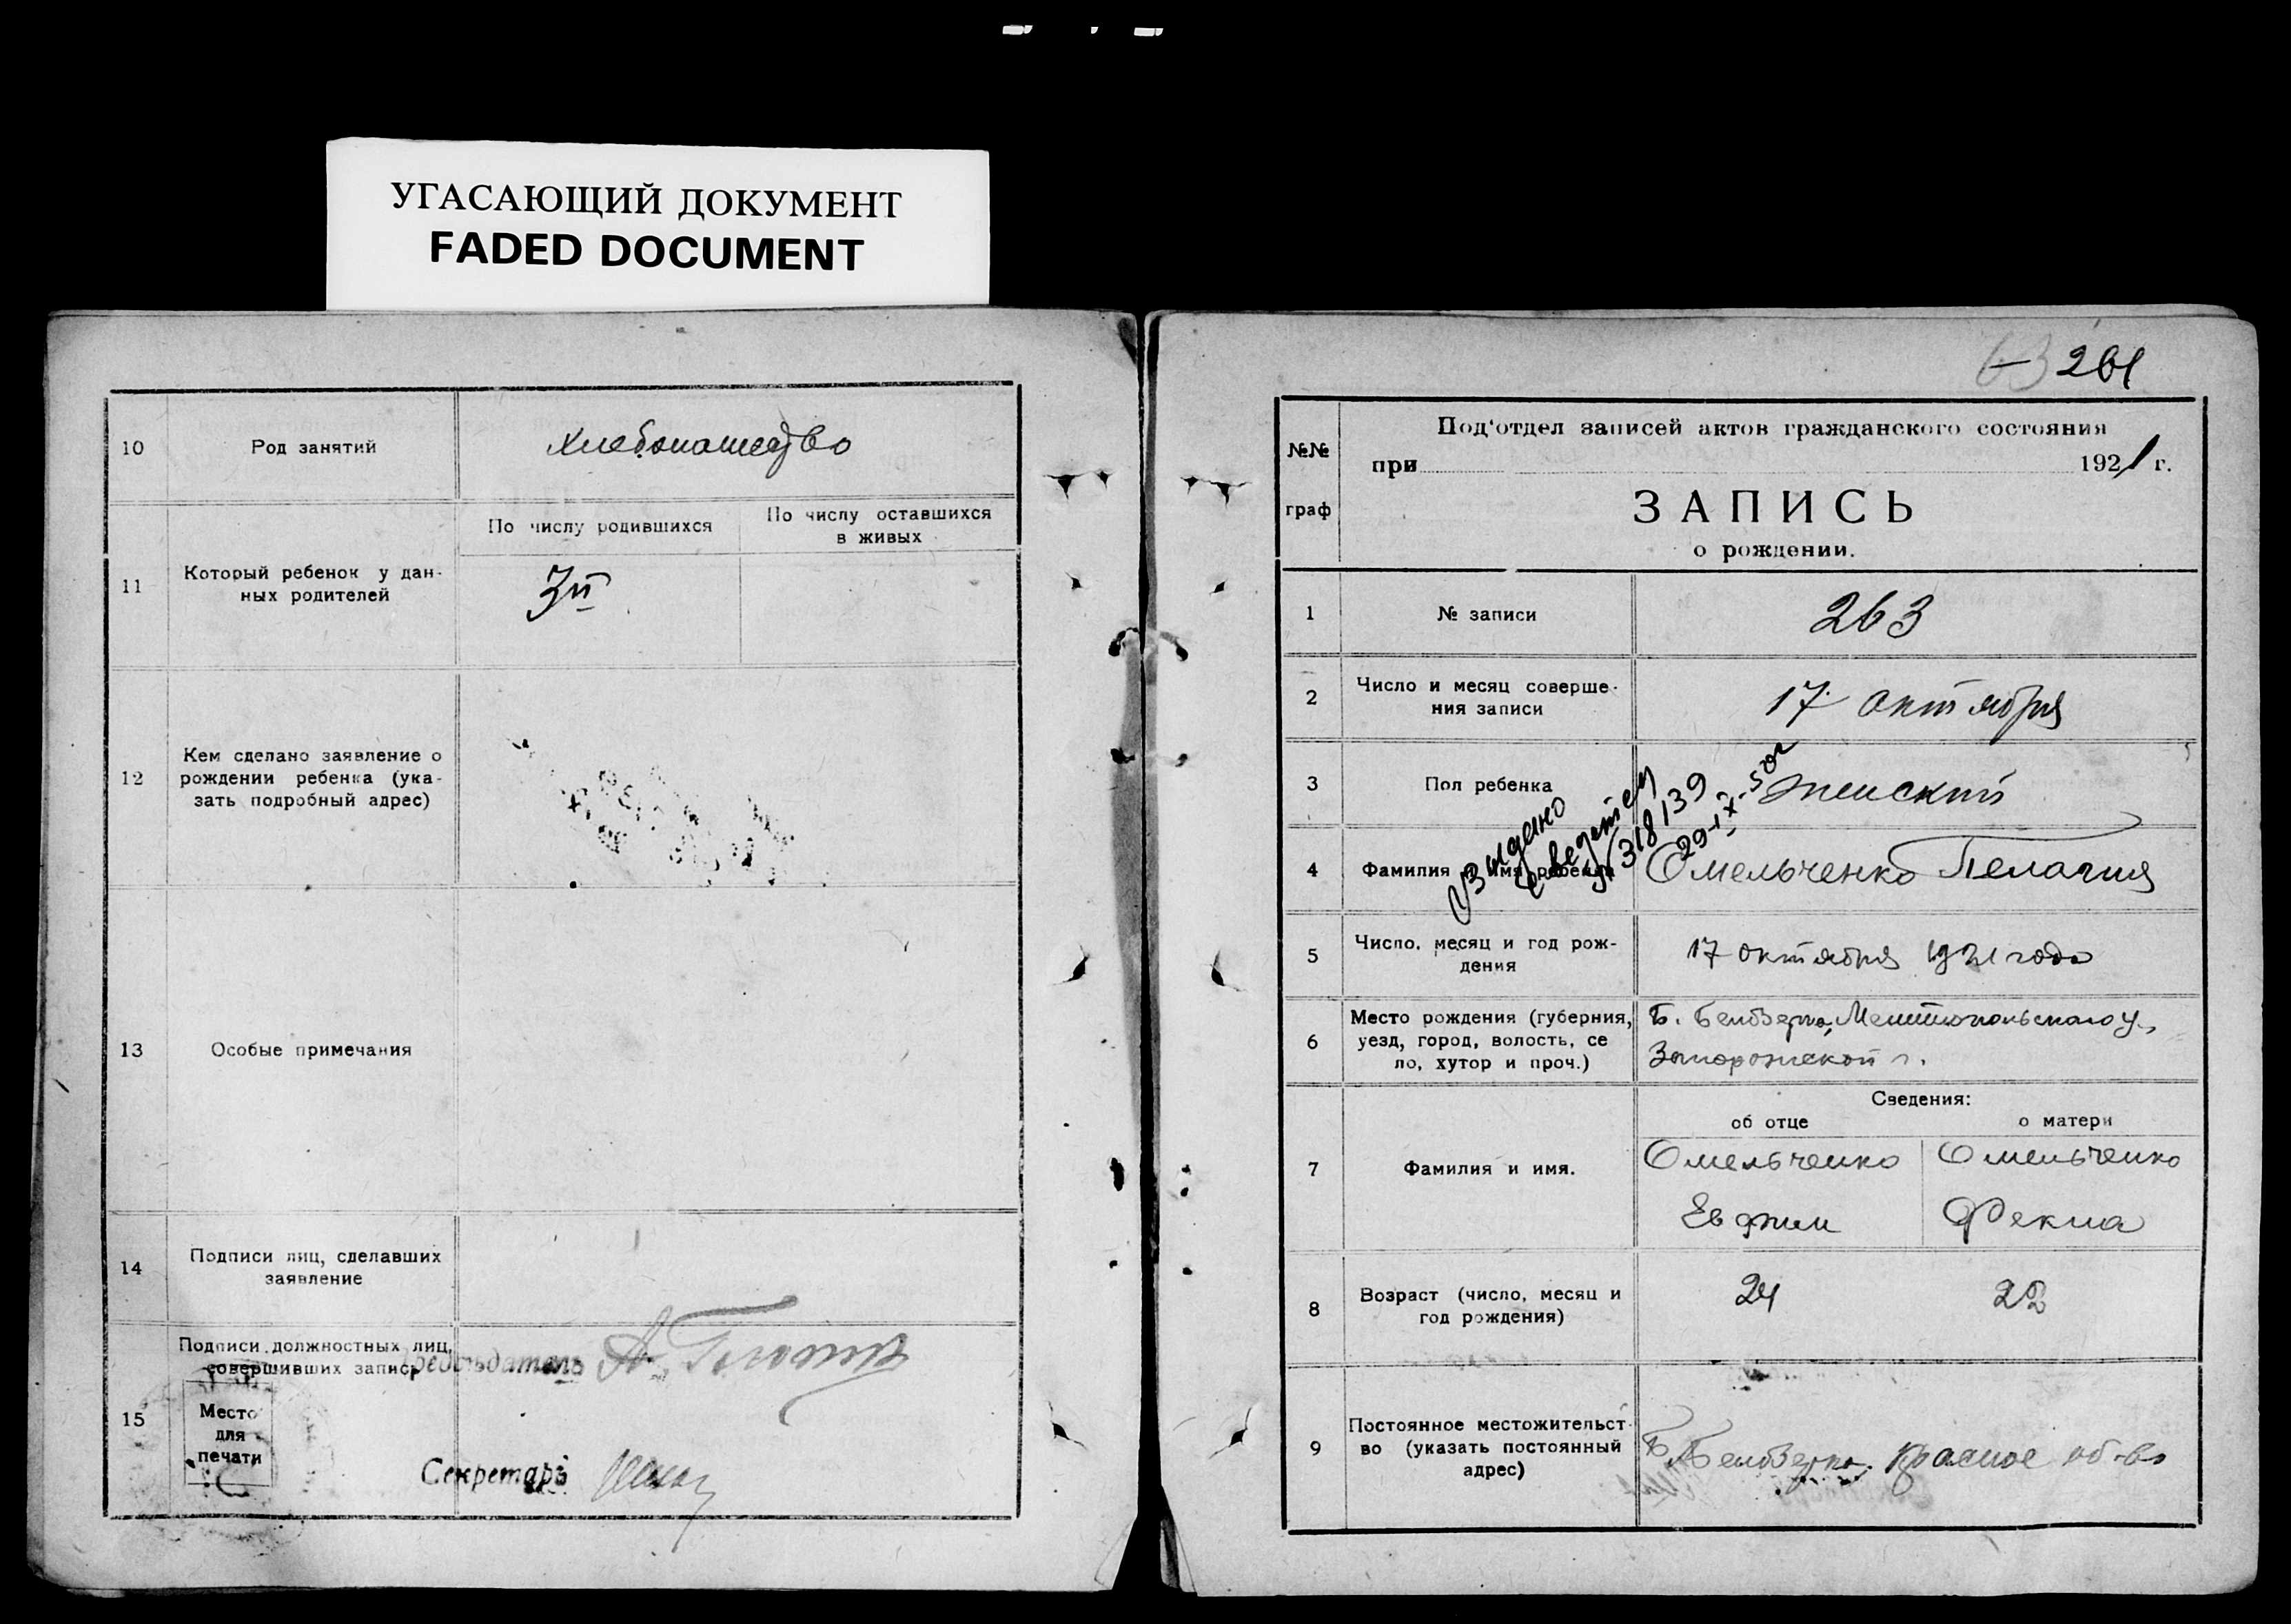 УГАСАЮЩИЙ ДОКУМЕНТ
FADED DOCUMENT
10
Род занятий
Хлебопашество
11
Который ребенок у дан-
ных родителей
По числу родившихся
По числу оставшихся
в живых
3й
12
Кем сделано заявление о
рождении ребенка (ука-
зать подробный адрес)
13
Особые примечания
14
Подписи лиц, сделавших
заявление
15
Подписи должностных лиц,
совершивших запись
Место
для
печати
Председатель
Секретарь
261
№№
граф
Под'отдел записей актов гражданского состояния
при 1921 г.
ЗАПИСЬ
о рождении.
1
№ записи
263
2
Число и месяц соверше-
ния записи
17 октября
3
Пол ребенка
женский
Выдано
318139
29-IX-50г
4
Фамилия и имя ребенка
Омельченко Пелагия
5
Число, месяц и год рож-
дения
17 октября 1921 года
6
Место рождения (губерния,
уезд, город, волость, се
ло, хутор и проч.)
Б. Белозерка, Мелитопольского у.,
Запорожской г.
7
Фамилия и имя.
Сведения:
об отце
о матери
Омельченко
Евфим
Омельченко
Фекла
8
Возраст (число, месяц и
год рождения)
24
22
9
Постоянное местожительст-
во (указать постоянный
адрес)
Б. Белозерка. Красное об-во